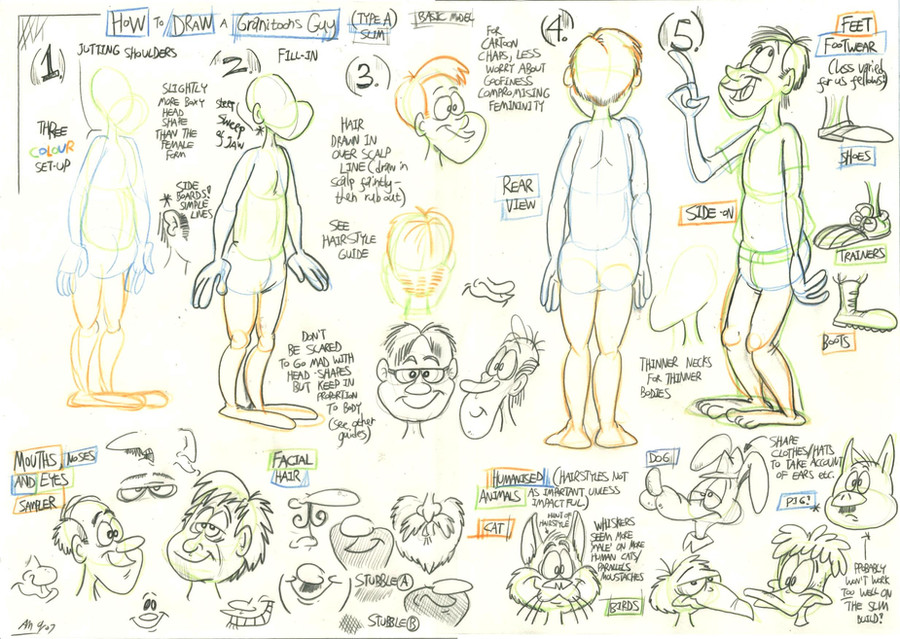 HOW TO DRAW A Granitoons Guy (TYPE A) SLIM BASIC MODEL
1.
JUTTING SHOULDERS
THREE
COLOUR
SET-UP
SLIGHTLY
MORE BOXY
HEAD
SHAPE
THAN THE
FEMALE
FORM
* SIDE
BOARDS!
SIMPLE
LINES
2.
FILL-IN
steep
sweep
of jaw
*
3.
HAIR
DRAWN IN
OVER SCALP
LINE (draw in
scalp faintly -
then rub out)
SEE
HAIRSTYLE
GUIDE
DON'T
BE SCARED
TO GO MAD WITH
HEAD-SHAPES
BUT KEEP IN
PROPORTION
TO BODY
(see other
guides)
FOR
CARTOON
CHAPS, LESS
WORRY ABOUT
GOOFINESS
COMPROMISING
FEMININITY
4.
REAR
VIEW
5.
SIDE-ON
THINNER NECKS
FOR THINNER
BODIES
FEET
FOOTWEAR
(Less varied
for us fellows!)
SHOES
TRAINERS
BOOTS
MOUTHS, NOSES
AND EYES
SAMPLER
FACIAL
HAIR
STUBBLE A
STUBBLE B
HUMANISED
ANIMALS
(HAIRSTYLES NOT
AS IMPORTANT, UNLESS
IMPACTFUL)
CAT
HAIRSTYLE
WHISKERS
SEEM MORE
'MALE' ON MORE
HUMAN CATS/
PARALLELS
MOUSTACHES
BIRDS
DOG
SHAPE
CLOTHES/HATS
TO TAKE ACCOUNT
OF EARS etc.
PIG! *
PROBABLY
WON'T WORK
TOO WELL ON
THE SLIM
BUILD!